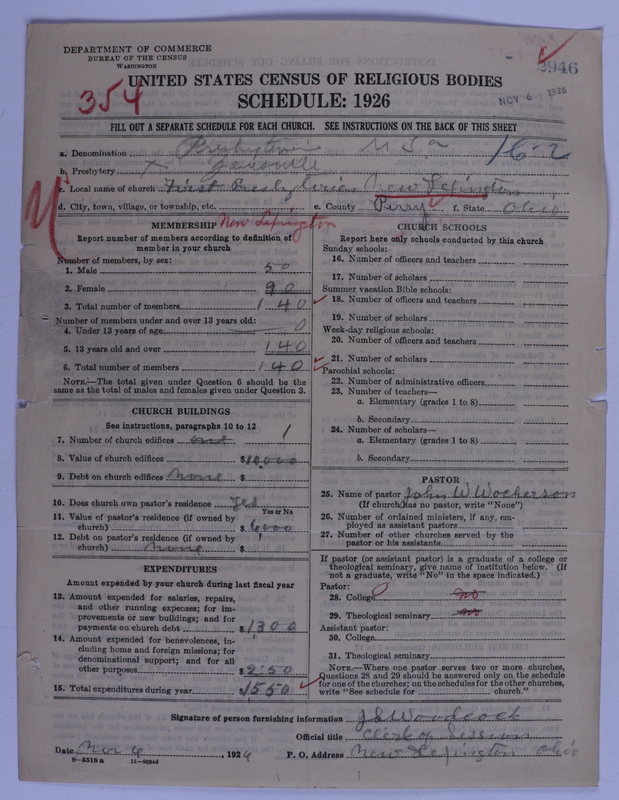 DEPARTMENT OF COMMERCE
BUREAU OF THE CENSUS
WASHINGTON
2946
NOV 6 1926
354
UNITED STATES CENSUS OF RELIGIOUS BODIES
SCHEDULE: 1926
FILL OUT A SEPARATE SCHEDULE FOR EACH CHURCH. SEE INSTRUCTIONS ON THE BACK OF THIS SHEET
a. Denomination Presbyterian U S a
16-2
b. Presbytery Zanesville
c. Local name of church First Presbyterian New Lexington
d. City, town, village, or township, etc. New Lexington e. County Perry f. State Ohio
MEMBERSHIP
Report number of members according to definition of member in your church
Number of members, by sex:
1. Male 50
2. Female 90
3. Total number of members 140
Number of members under and over 13 years old:
4. Under 13 years of age 0
5. 13 years old and over 140
6. Total number of members 140
NOTE.—The total given under Question 6 should be the same as the total of males and females given under Question 3.
CHURCH BUILDINGS
See instructions, paragraphs 10 to 12
7. Number of church edifices one 1
8. Value of church edifices $10,000
9. Debt on church edifices none $
10. Does church own pastor's residence Yes
Yes or No
11. Value of pastor's residence (if owned by church) $6000
12. Debt on pastor's residence (if owned by church) none $
EXPENDITURES
Amount expended by your church during last fiscal year
13. Amount expended for salaries, repairs, and other running expenses; for improvements or new buildings; and for payments on church debt $1300
14. Amount expended for benevolences, including home and foreign missions; for denominational support; and for all other purposes $250
15. Total expenditures during year $1550
CHURCH SCHOOLS
Report here only schools conducted by this church
Sunday schools:
16. Number of officers and teachers
17. Number of scholars
Summer vacation Bible schools:
18. Number of officers and teachers
19. Number of scholars
Week-day religious schools:
20. Number of officers and teachers
21. Number of scholars
Parochial schools:
22. Number of administrative officers
23. Number of teachers—
a. Elementary (grades 1 to 8)
b. Secondary
24. Number of scholars—
a. Elementary (grades 1 to 8)
b. Secondary
PASTOR
25. Name of pastor John W.
(If church has no pastor, write "None")
26. Number of ordained ministers, if any, employed as assistant pastors
27. Number of other churches served by the pastor or his assistants
If pastor (or assistant pastor) is a graduate of a college or theological seminary, give name of institution below. (If not a graduate, write "No" in the space indicated.)
Pastor:
28. College no
29. Theological seminary no
Assistant pastor:
30. College
31. Theological seminary
NOTE.—Where one pastor serves two or more churches, Questions 28 and 29 should be answered only on the schedule for one of the churches; on the schedules for the other churches, write "See schedule for church."
Signature of person furnishing information J E Woodcock
Official title Clerk of Session
Date Nov 4, 1926 P. O. Address New Lexington Ohio
8-5518 a